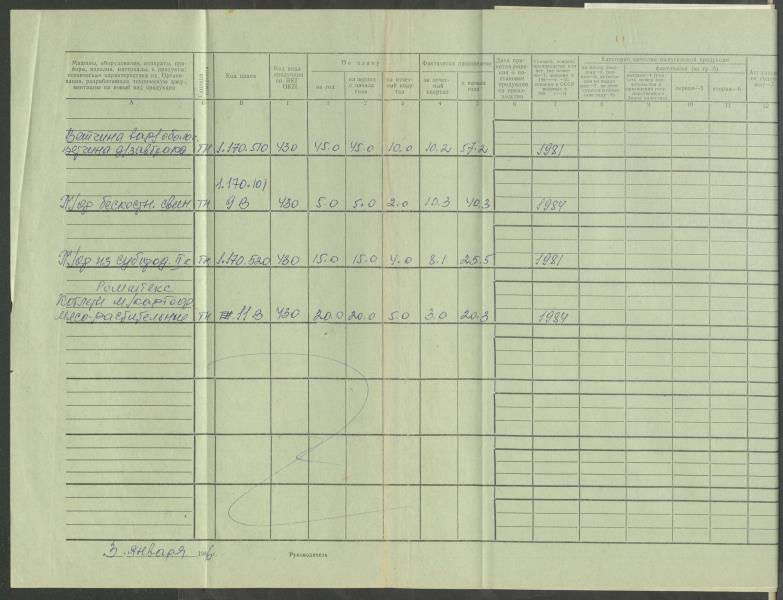 Машины, оборудование, аппараты, приборы, изделия, материалы, и продукты;
техническая характеристика их. Организация, разработавшая техническую документацию на новый вид продукции
Код плана
Код вида продукции по ВКГ ОКП
По плану
на год
на период с начала года
на отчетный квартал
Фактически произведено
за отчетный квартал
с начала года
Дата принятия решения о постановке продукции на производство
Категории качества выпускаемой продукции
фактически (из гр. 5)
первая—5
вторая—6
А Б В 1 2 3 4 5 6 7 8 9 10 11 12
Ветчина вар/оболоч.
ветчина д/завтрака тн 1.170.510 430 45.0 45.0 10.0 10.2 57.2 1981
1.170.101
П/ф бескостн. свин тн 9 В 430 5.0 5.0 2.0 10.3 40.3 1984
П/ф из субпрод. тн 1.170.520 430 15.0 15.0 4.0 8.1 25.5 1981
Ромштекс
Котлеты м/картоф
мясо-растительные тн 11 В 430 20.0 20.0 5.0 3.0 20.3 1984
3 января 1986 г. Руководитель